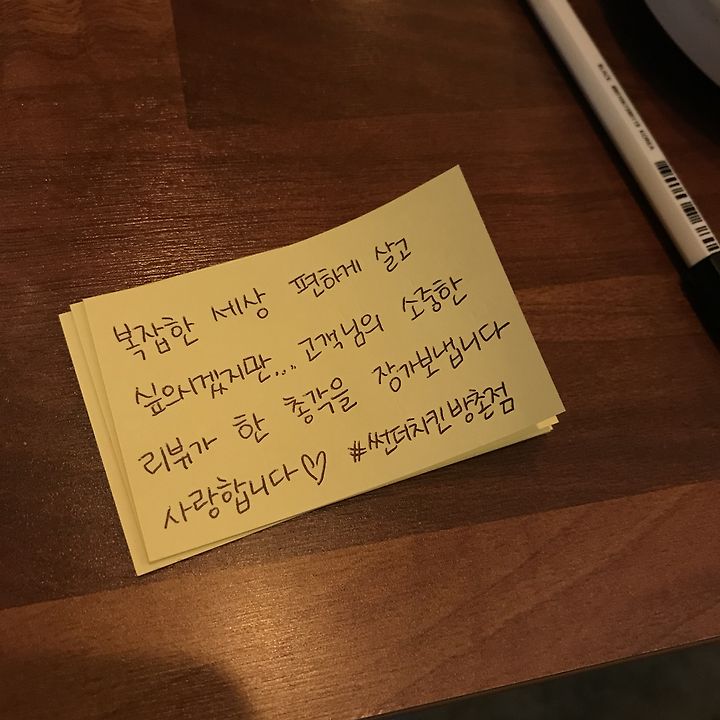 복잡한 세상 편하게 살고
싶으시겠지만... 고객님의 소중한
리뷰가 한 총각을 장가보냅니다
사랑합니다♡ #썬더치킨방촌점